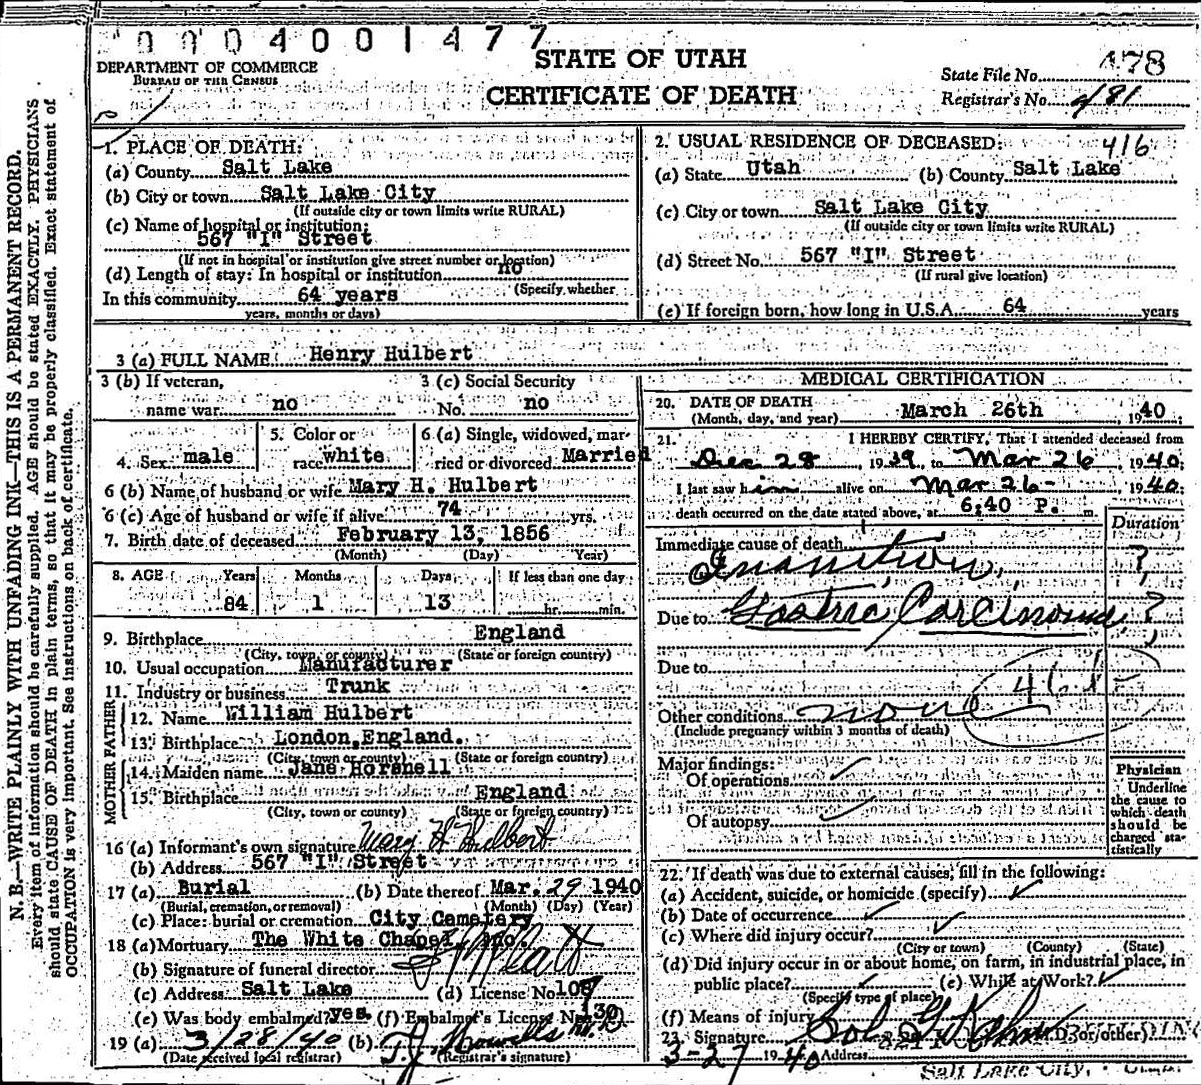 0004001477
STATE OF UTAH
CERTIFICATE OF DEATH
DEPARTMENT OF COMMERCE
BUREAU OF THE CENSUS
State File No. 478
Registrar's No. 481
N. B.—WRITE PLAINLY WITH UNFADING INK—THIS IS A PERMANENT RECORD.
Every item of information should be carefully supplied. AGE should be stated EXACTLY. PHYSICIANS
should state CAUSE OF DEATH in plain terms, so that it may be properly classified. Exact statement of
OCCUPATION is very important. See instructions on back of certificate.
1. PLACE OF DEATH:
(a) County Salt Lake
(b) City or town Salt Lake City
(If outside city or town limits write RURAL)
(c) Name of hospital or institution:
567 "I" Street
(If not in hospital or institution give street number or location)
(d) Length of stay: In hospital or institution no
(Specify whether
In this community 64 years
years, months or days)
2. USUAL RESIDENCE OF DECEASED: 416
(a) State Utah (b) County Salt Lake
(c) City or town Salt Lake City
(If outside city or town limits write RURAL)
(d) Street No. 567 "I" Street
(If rural give location)
(e) If foreign born, how long in U.S.A. 64 years
3 (a) FULL NAME Henry Hulbert
3 (b) If veteran,
name war no
3 (c) Social Security
No. no
4. Sex male
5. Color or
race white
6 (a) Single, widowed, mar-
ried or divorced Married
6 (b) Name of husband or wife Mary H. Hulbert
6 (c) Age of husband or wife if alive 74 yrs.
7. Birth date of deceased February 13, 1856
(Month) (Day) Year)
8. AGE Years Months Days If less than one day
84 1 13 hr. min.
9. Birthplace England
(City, town, or county) (State or foreign country)
10. Usual occupation Manufacturer
11. Industry or business Trunk
FATHER
12. Name William Hulbert
13. Birthplace London, England.
(City, town or county) (State or foreign country)
MOTHER
14. Maiden name Jane Horsnell
15. Birthplace England
(City, town or county) (State or foreign country)
16 (a) Informant's own signature Mary H Hulbert
(b) Address 567 "I" Street
17 (a) Burial (b) Date thereof Mar. 29 1940
(Burial, cremation, or removal) (Month) (Day) (Year)
(c) Place: burial or cremation City Cemetery
18 (a) Mortuary The White Chapel, Inc.
(b) Signature of funeral director
(c) Address Salt Lake (d) License No.
(e) Was body embalmed? yes (f) Embalmer's License No. 130
19 (a) 3/28/40 (b) T.J. Howells M.D.
(Date received local registrar) (Registrar's signature)
MEDICAL CERTIFICATION
20. DATE OF DEATH
(Month, day, and year) March 26th 1940;
21. I HEREBY CERTIFY, That I attended deceased from
Dec 28, 1939, to Mar 26, 1940;
I last saw him alive on Mar 26- 1940;
death occurred on the date stated above, at 6:40 P. m.
Duration
Immediate cause of death
Inanition, ?
Due to Gastric Carcinoma, ?
Due to
Other conditions none
(Include pregnancy within 3 months of death)
Major findings:
Of operations
Of autopsy
Physician
Underline
the cause to
which death
should be
charged sta-
tistically
22. If death was due to external causes, fill in the following:
(a) Accident, suicide, or homicide (specify)
(b) Date of occurrence
(c) Where did injury occur?
(City or town) (County) (State)
(d) Did injury occur in or about home, on farm, in industrial place, in
public place? (e) While at Work?
(Specify type of place)
(f) Means of injury
23. Signature Sol G. Kahn (M.D. or other)
3-27 1940 Address
Salt Lake City,